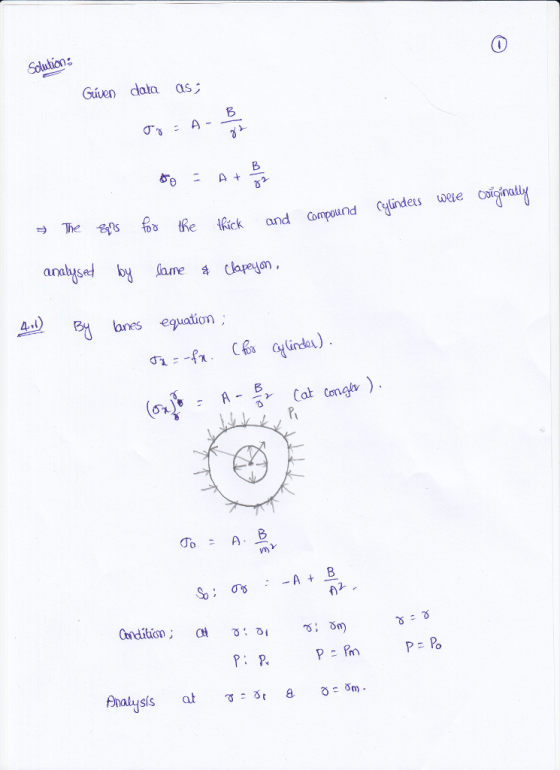 ①
Solution:
Given data as;
σr = A - B/r²
σθ = A + B/r²
⇒ The eqns for the thick and compound cylinders were originally
analysed by lame & Clapeyon.
4.1) By lames equation;
σx = -fx. (for cylinder).
(σx) = A - B/r² (at conger).
P1
σ0 = A. B/m²
So; σr = -A + B/A².
Condition; at r: r1 r: rm r = r
P: P. P = Pm P = P0
Analysis at r = r1 & r = rm.